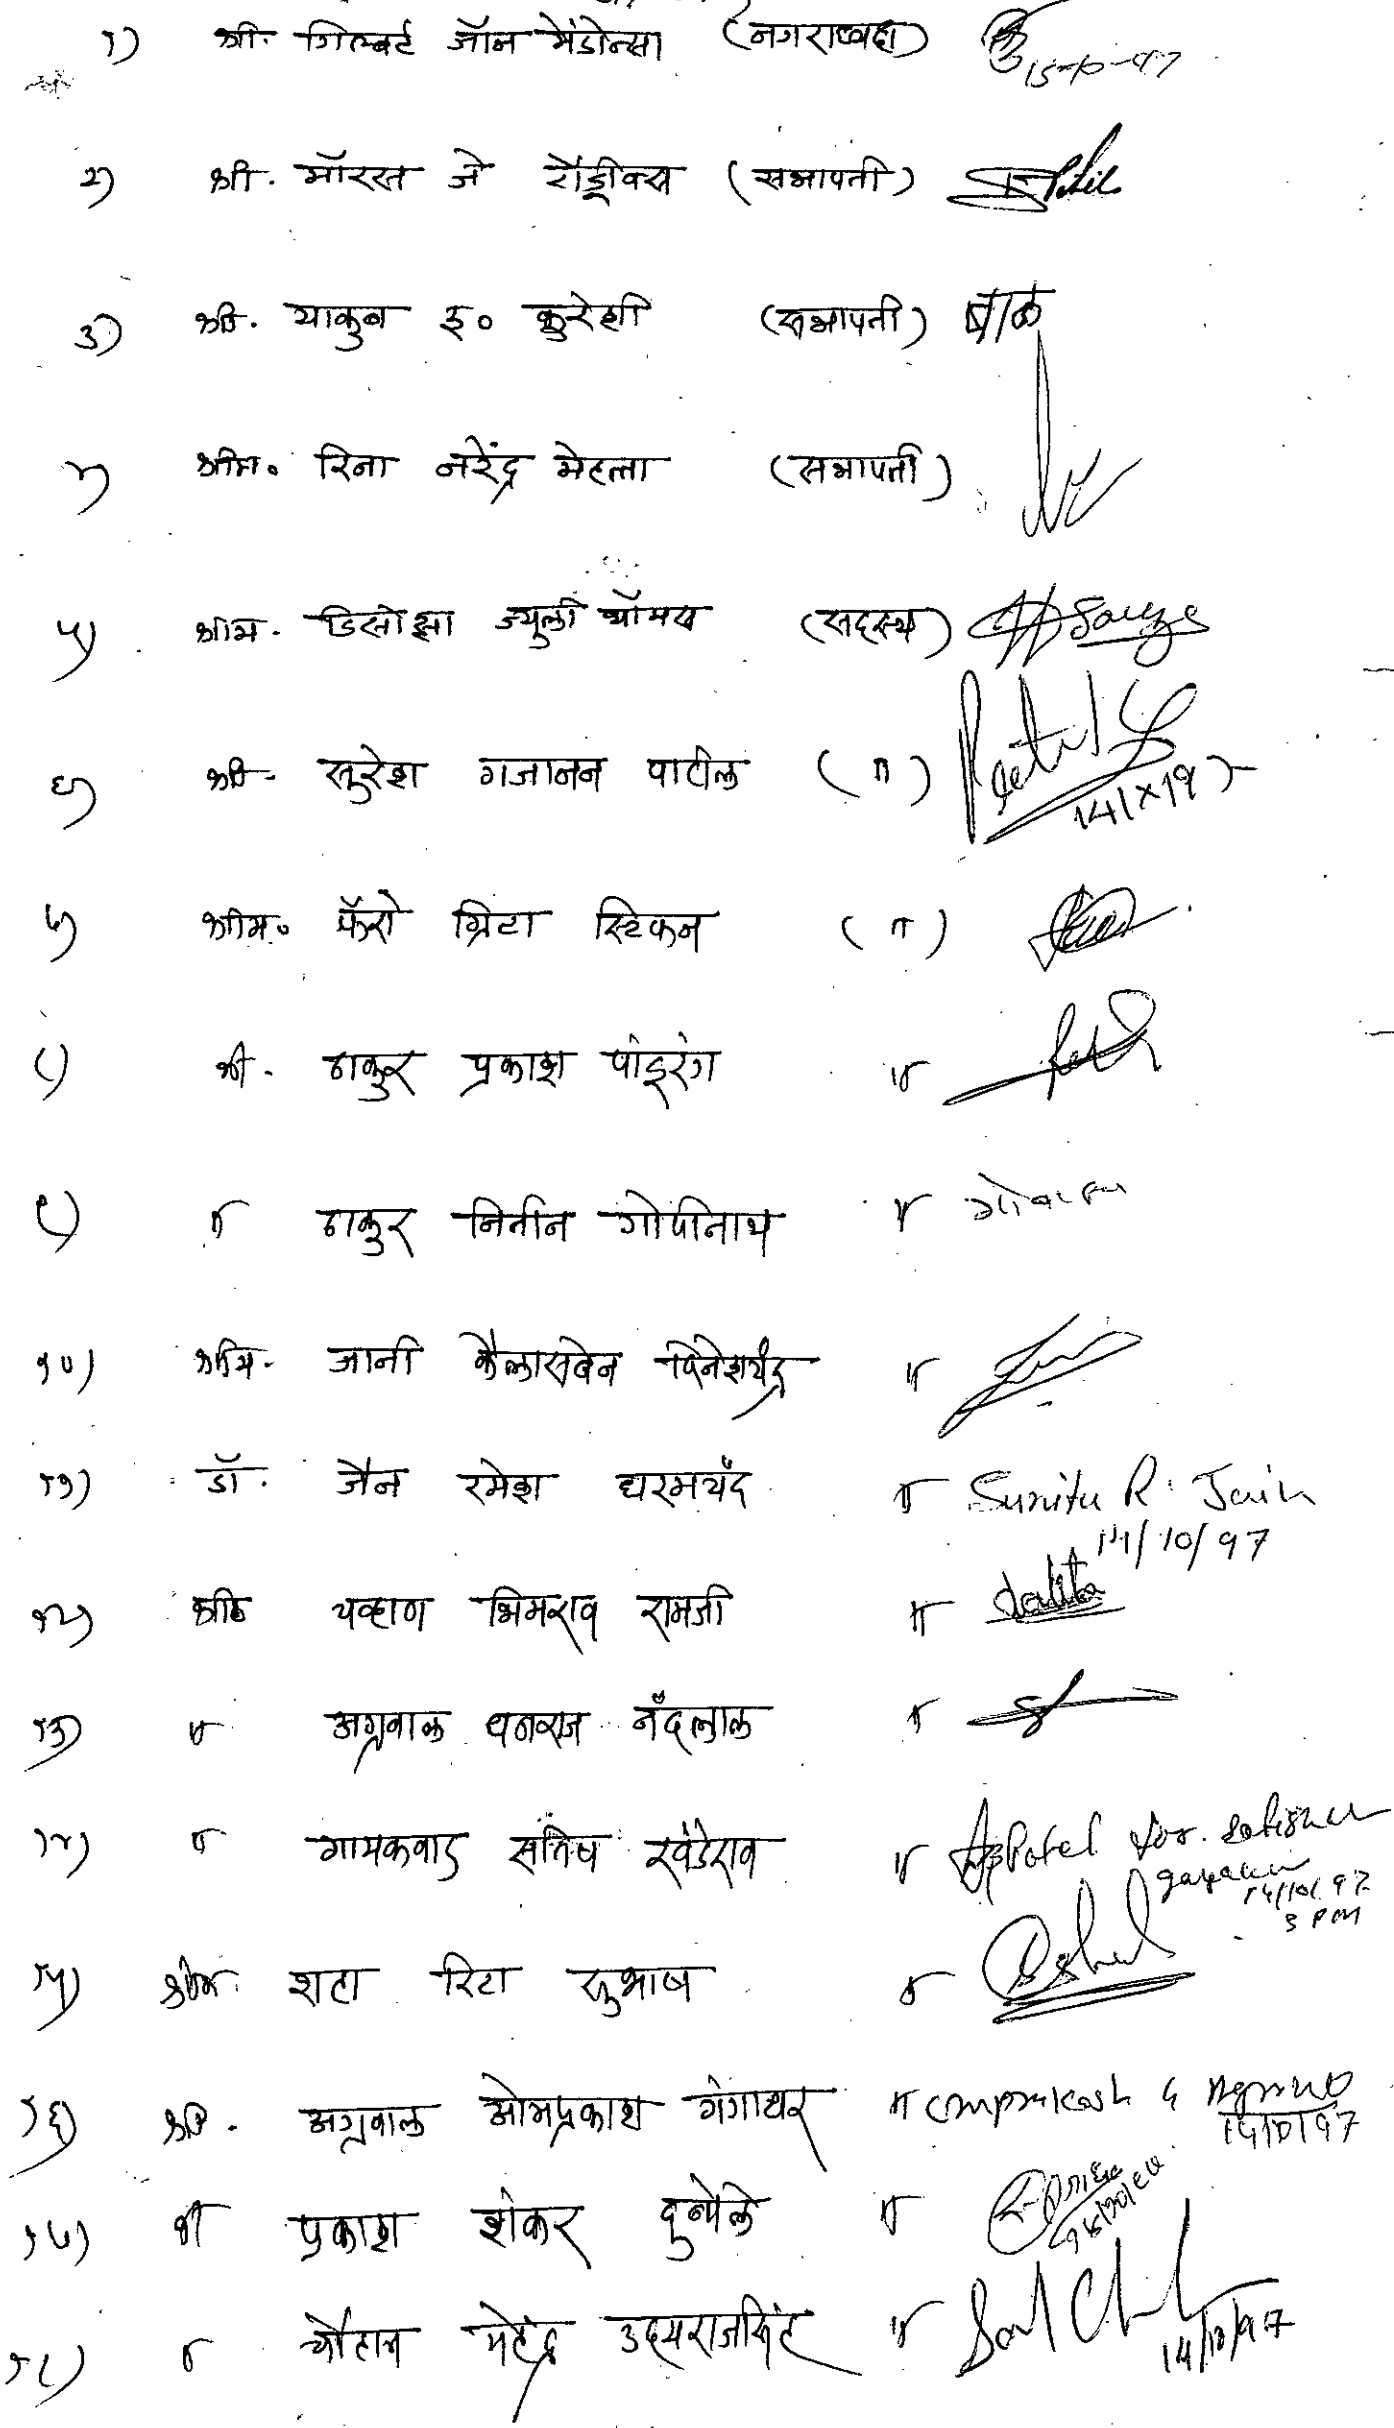 १) श्री. गिल्बर्ट जॉन मेंडोन्सा (नगराध्यक्ष) 15-10-97
२) श्री. मॉरस जे रॉड्रीक्स (सभापती)
३) श्री. याकुब इ० कुरेशी (सभापती)
४) श्रीम. रिना नरेंद्र मेहता (सभापती)
५) श्रीम. डिसोझा ज्युली थॉमस (सदस्य)
६) श्री. सुरेश गजानन पाटील ( " ) 14/X/97
७) श्रीम. फॅरो ग्रिटा स्टिफन ( " )
८) श्री. ठाकुर प्रकाश पांडुरंग "
९) " ठाकुर नितीन गोपीनाथ "
१०) श्रीम. जानी कैलासबेन दिनेशचंद्र "
११) डॉ. जैन रमेश धरमचंद " Sunita R. Jain
14/10/97
१२) श्री चव्हाण भिमराव रामजी " Lalita
१३) " अग्रवाल धनराज नंदलाल "
१४) " गायकवाड सतिष खंडेराव " Patel for. Satishu
14/10/97
3 PM
१५) श्रीम. शहा रिटा सुभाष "
१६) श्री. अग्रवाल ओमप्रकाश गंगाधर " omprakash G Agrawal
14/10/97
१७) श्री प्रकाश शंकर दुन्धेले "
१८) " चौहान महेंद्र उदयराजसिंह "
14/10/97